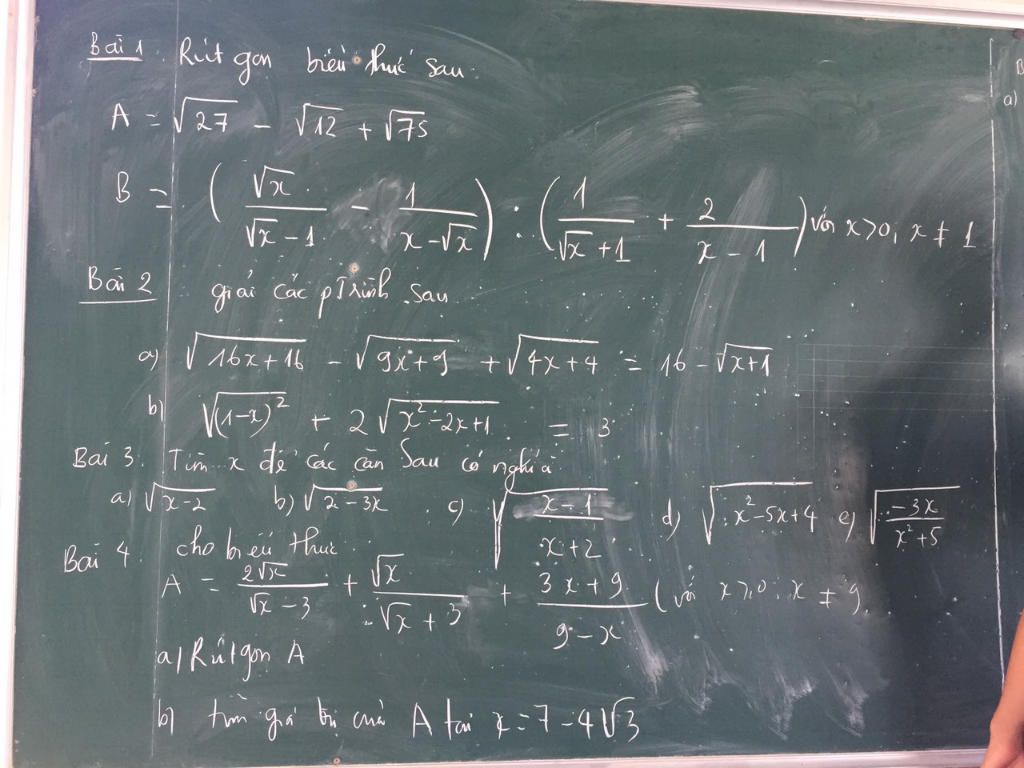 Bài 1. Rút gọn biểu thức sau:
A = √27 - √12 + √75
B = (√x/(√x - 1) - 1/(x - √x)) : (1/(√x + 1) + 2/(x - 1)) với x > 0, x ≠ 1
Bài 2 giải các ptrình sau
a) √(16x+16) - √(9x+9) + √(4x+4) = 16 - √(x+1)
b) √((1-x)²) + 2√(x²-2x+1) = 3
Bài 3. Tìm x để các căn sau có nghĩa
a) √(x-2) b) √(2-3x) c) √((x-1)/(x+2)) d) √(x²-5x+4) e) √(-3x/(x²+5))
Bài 4 cho biểu thức
A = 2√x/(√x - 3) + √x/(√x + 3) + (3x+9)/(9-x) (với x ≥ 0; x ≠ 9
a) Rút gọn A
b) tìm giá trị của A tại x = 7 - 4√3
B
a)